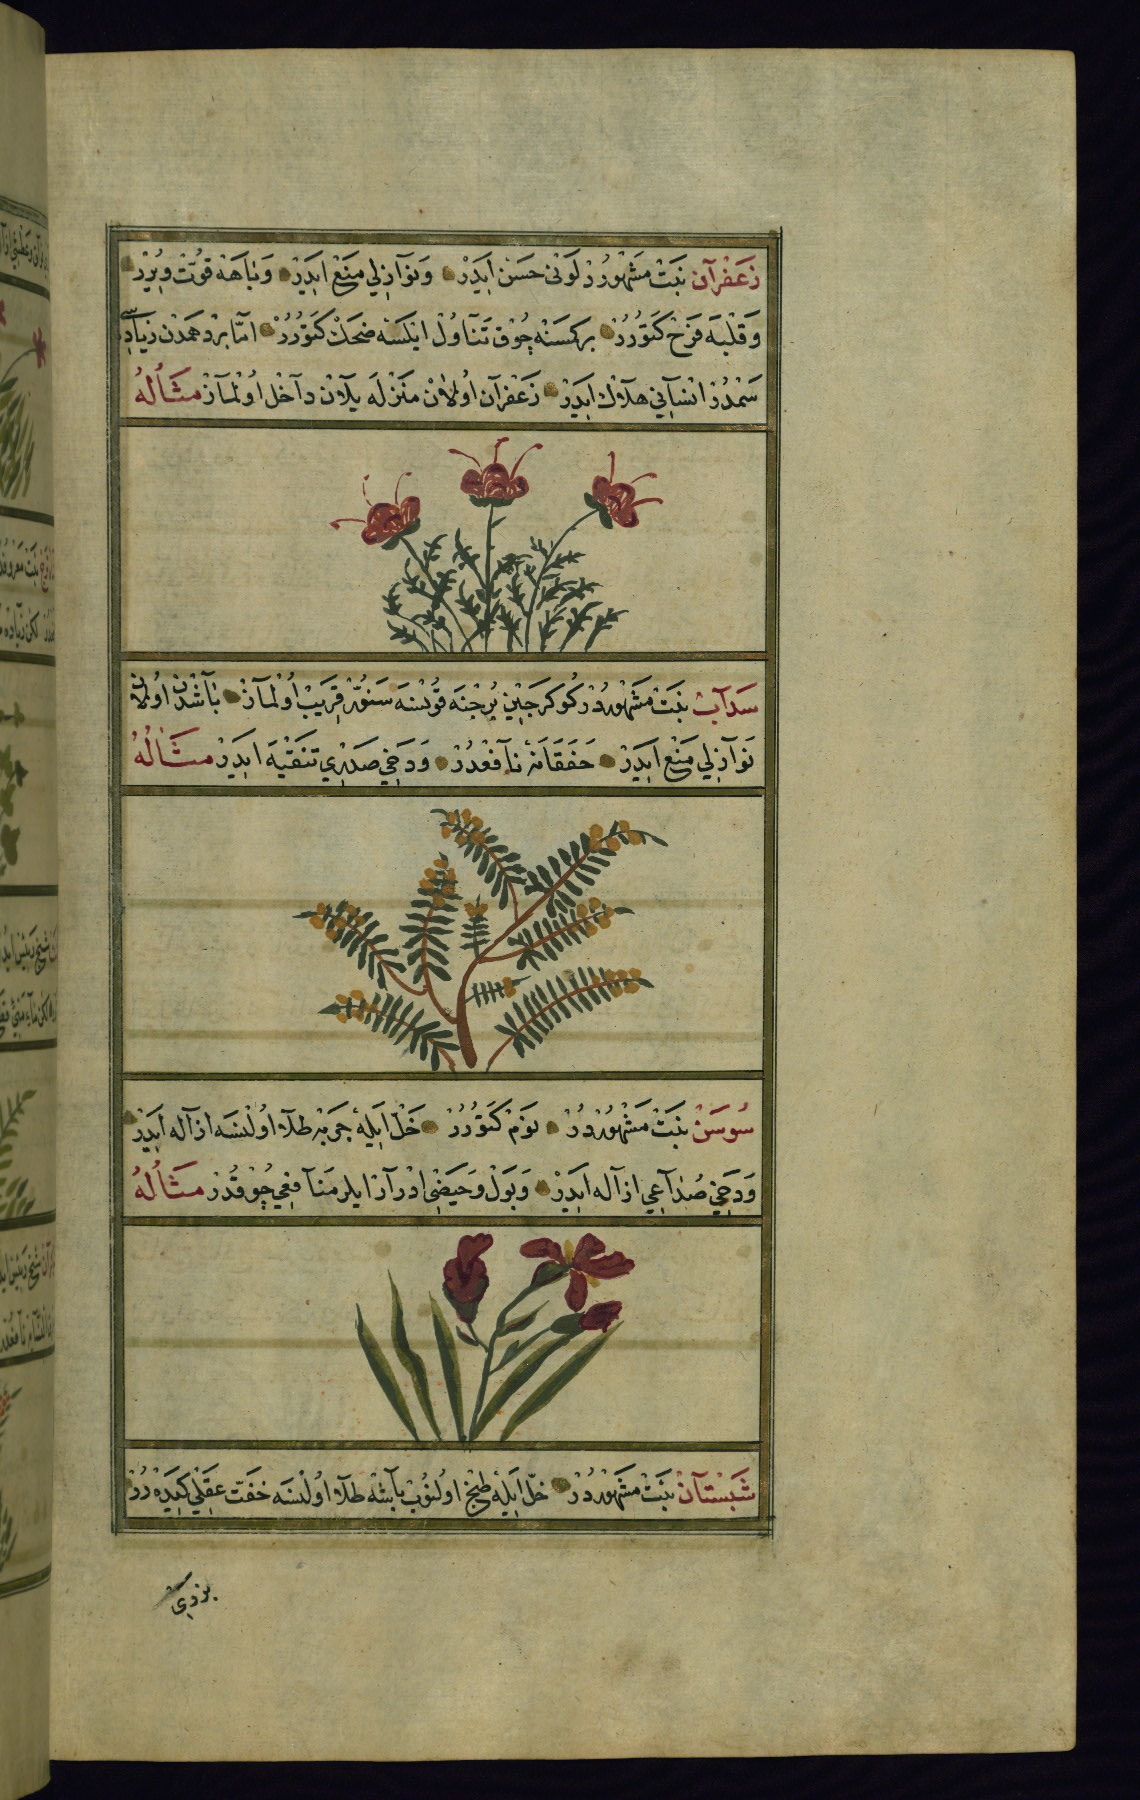 زعفران نبت مشهوردر لونی حسن ایدر ونوازلی منع ایدر وباهه قوت ویرر
وقلبه فرح کتورر بر کسنه چوق تناول ایلسه ضحك کتورر اما بر درهمدن زیاده سی
سمدر انسانی هلاك ایدر زعفران اولان منزله یلان داخل اولماز مثاله
سداب نبت مشهوردر کوکرجین برجنه قونسه سنور قریب اولماز باشدن اولان
نوازلی منع ایدر خفقانه نافعدر ودخی صدری تنقیه ایدر مثاله
سوسن نبت مشهوردر نوم کتورر خل ایله جربه طلا اولنسه ازاله ایدر
ودخی صداعی ازاله ایدر وبول وحیضی ادرار ایلر منافعی چوقدر مثاله
شبستان نبت مشهوردر خل ایله طبخ اولنوب باشه طلا اولنسه خفت عقلی کیدرر